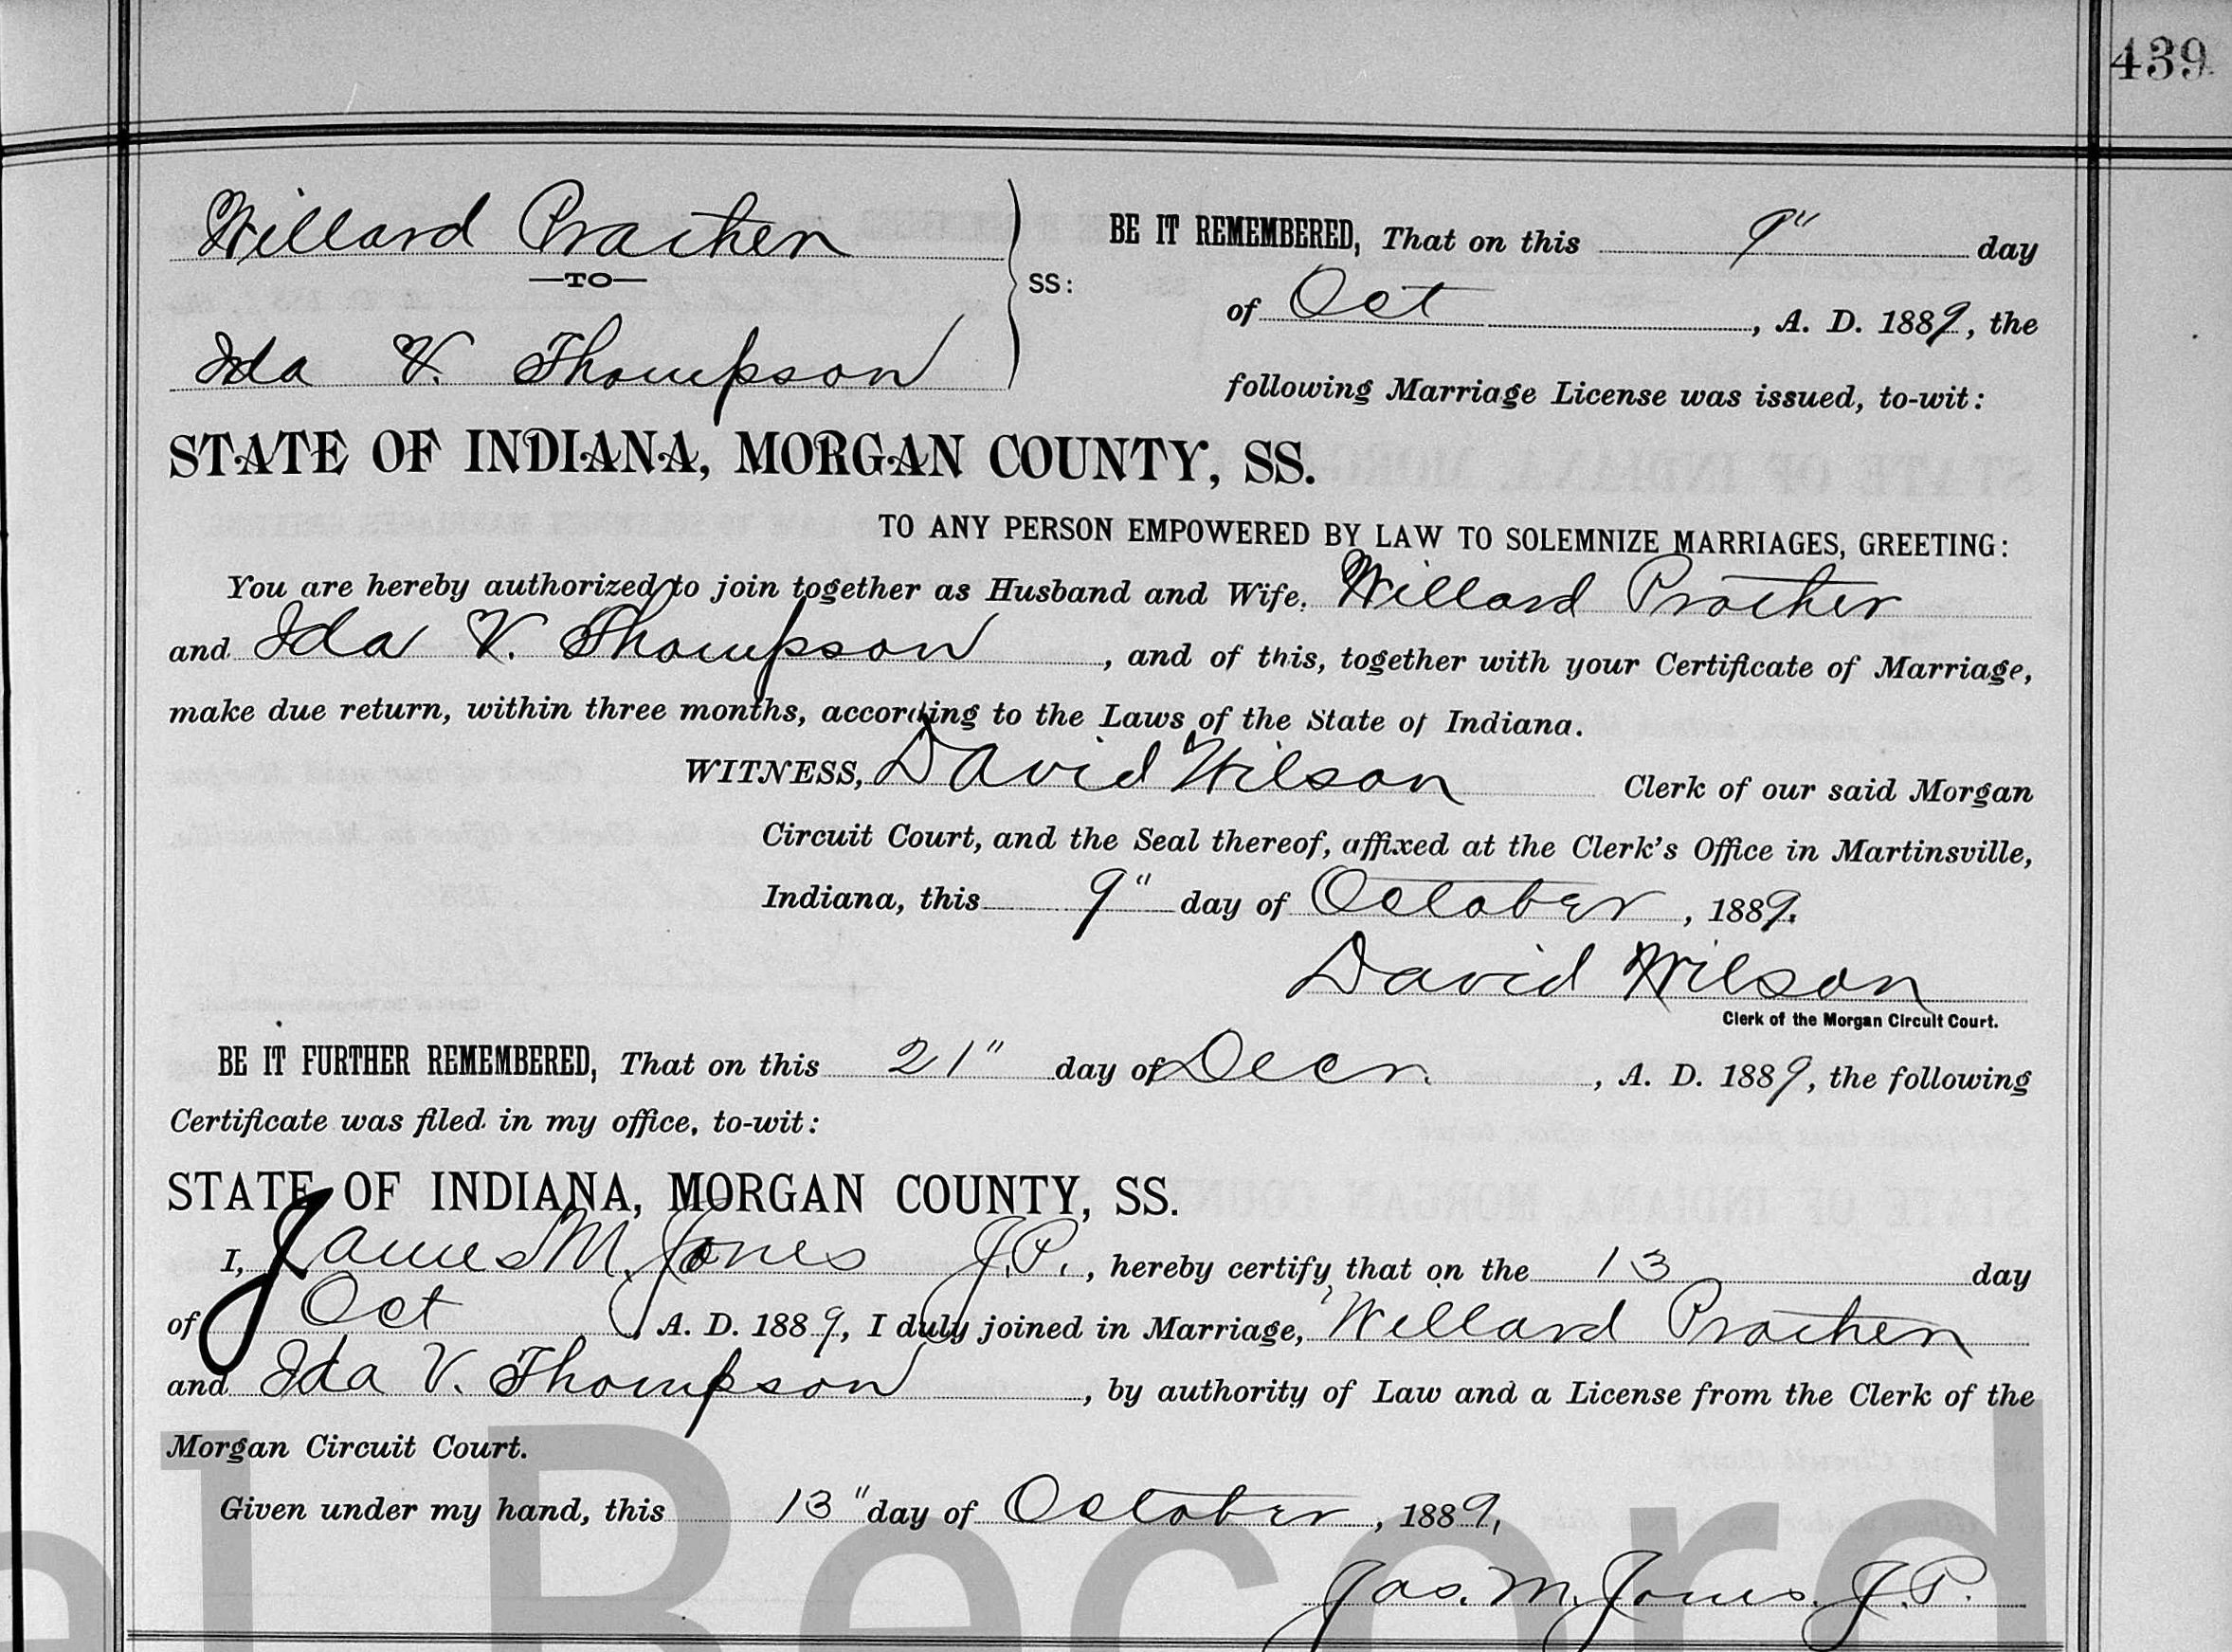 439
Willard Prather
BE IT REMEMBERED, That on this 9" day
—TO—
SS:
of Oct, A. D. 1889, the
Ida V. Thompson
following Marriage License was issued, to-wit:
STATE OF INDIANA, MORGAN COUNTY, SS.
TO ANY PERSON EMPOWERED BY LAW TO SOLEMNIZE MARRIAGES, GREETING:
You are hereby authorized to join together as Husband and Wife, Willard Prather
and Ida V. Thompson, and of this, together with your Certificate of Marriage,
make due return, within three months, according to the Laws of the State of Indiana.
WITNESS, David Wilson Clerk of our said Morgan
Circuit Court, and the Seal thereof, affixed at the Clerk's Office in Martinsville,
Indiana, this 9" day of October, 1889.
David Wilson
Clerk of the Morgan Circuit Court.
BE IT FURTHER REMEMBERED, That on this 21" day of Decr., A. D. 1889, the following
Certificate was filed in my office, to-wit:
STATE OF INDIANA, MORGAN COUNTY, SS.
I, James M. Jones J.P., hereby certify that on the 13 day
of Oct, A. D. 1889, I duly joined in Marriage, Willard Prather
and Ida V. Thompson, by authority of Law and a License from the Clerk of the
Morgan Circuit Court.
Given under my hand, this 13" day of October, 1889,
Jas. M. Jones. J.P.
el Record